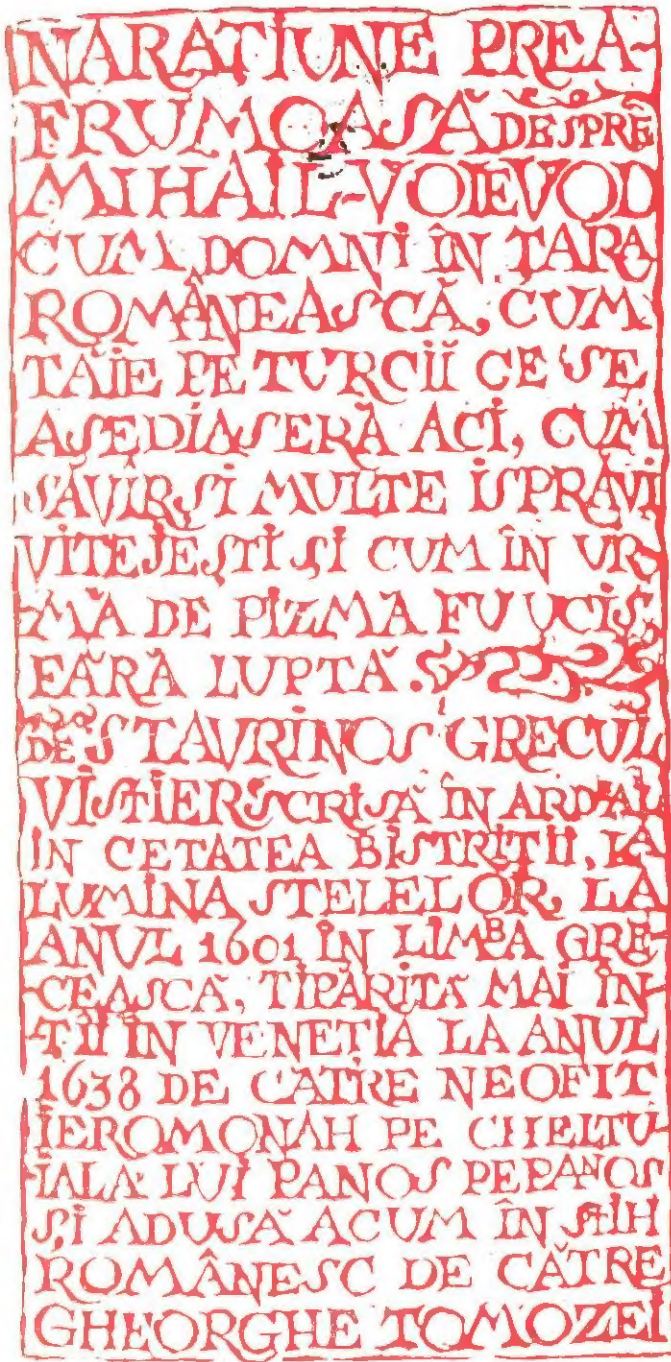 NARAȚIUNE PREA-
FRUMOASĂ DESPRE
MIHAIL-VOIEVOD
CUM DOMNI ÎN ȚARA
ROMÂNEASCĂ, CUM
TĂIE PE TURCII CE SE
AȘEDIASERĂ ACI, CUM
SĂVÎRȘI MULTE ISPRĂVI
VITEJEȘTI ȘI CUM ÎN UR-
MĂ DE PIZMA FU UCIS
FĂRĂ LUPTĂ.
DE STAVRINOS GRECUL
VISTIER SCRISĂ ÎN ARDEAL
IN CETATEA BISTRIȚII, LA
LUMINA STELELOR, LA
ANUL 1601 IN LIMBA GRE-
CEASCĂ, TIPĂRITĂ MAI ÎN-
TII IN VENEȚIA LA ANUL
1638 DE CATRE NEOFIT
IEROMONAH PE CHELTU-
IALA LUI PANOS PEPANOS
ȘI ADUSĂ ACUM ÎN STIH
ROMÂNESC DE CĂTRE
GHEORGHE TOMOZEI